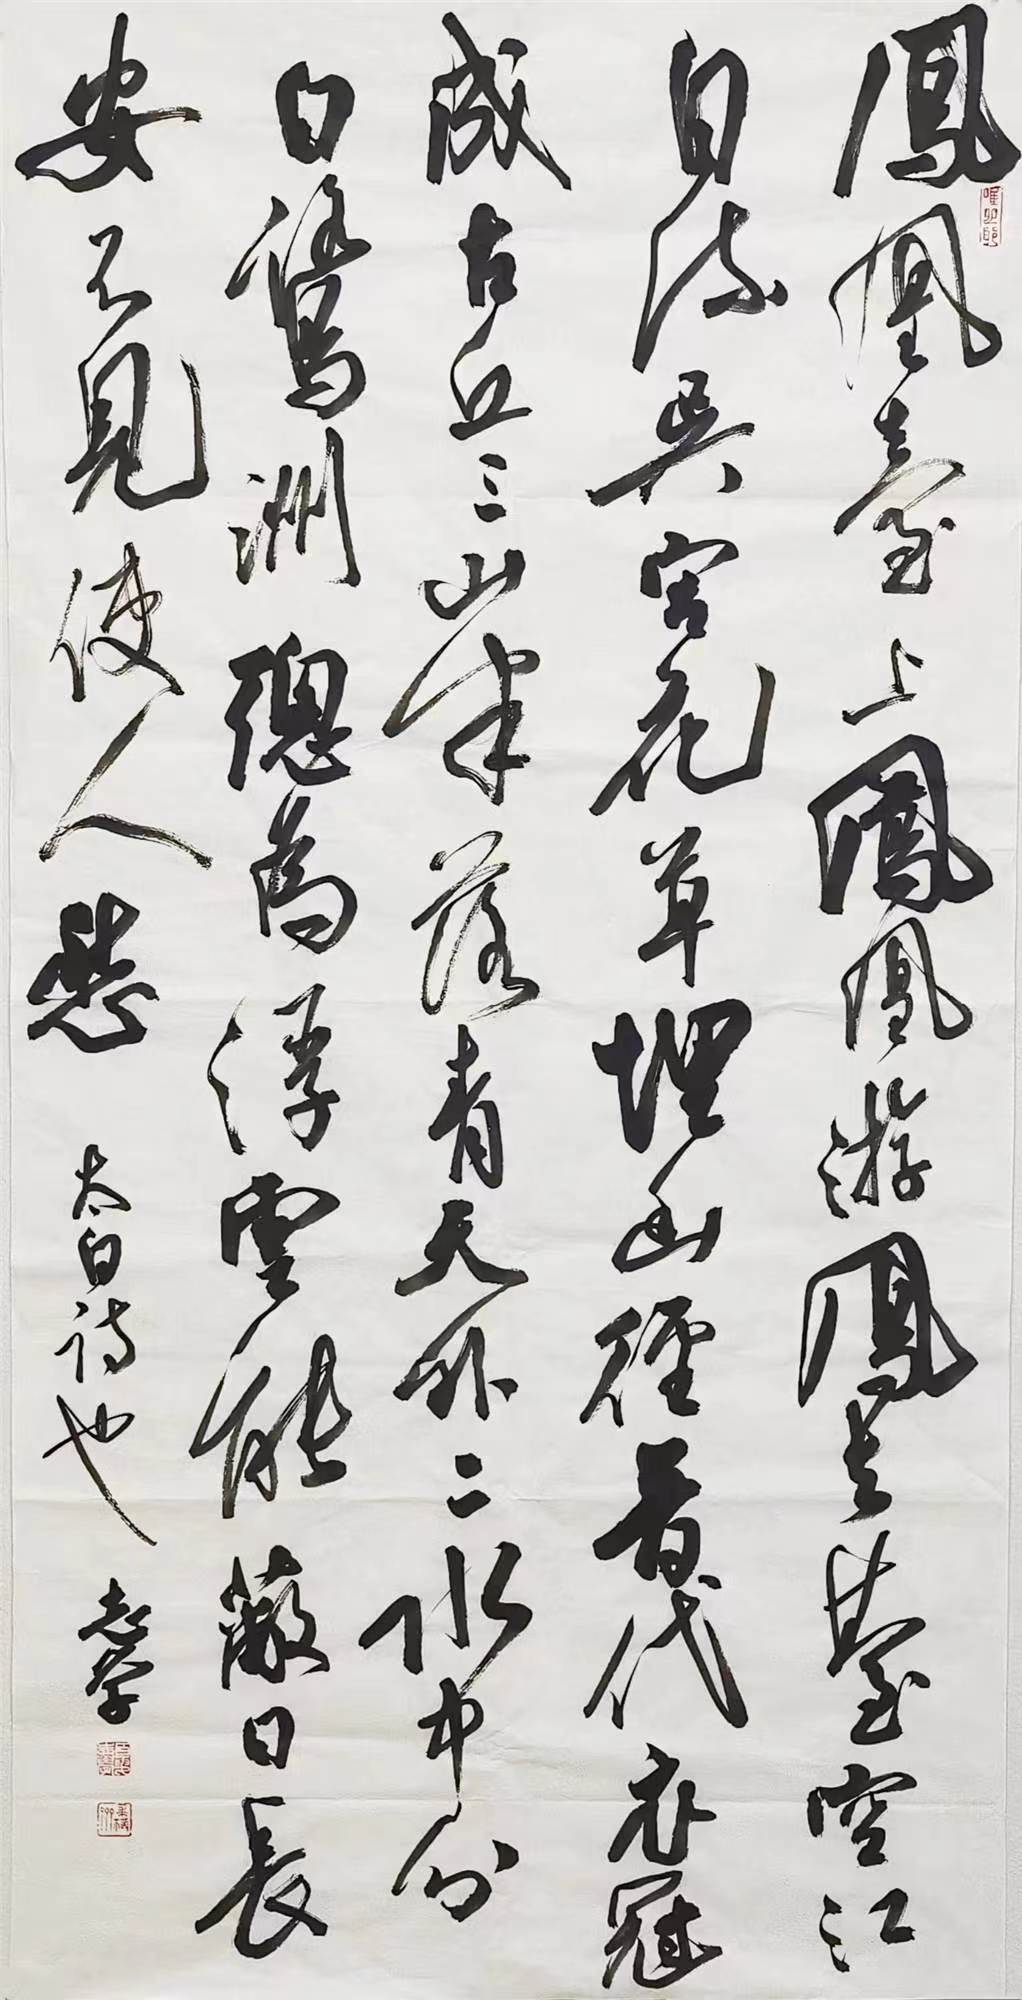 鳳凰臺上鳳凰游鳳去臺空江
自流吳宮花草埋幽徑晉代衣冠
成古丘三山半落青天外二水中分
白鷺洲總為浮雲能蔽日長
安不見使人愁 太白詩也 志學